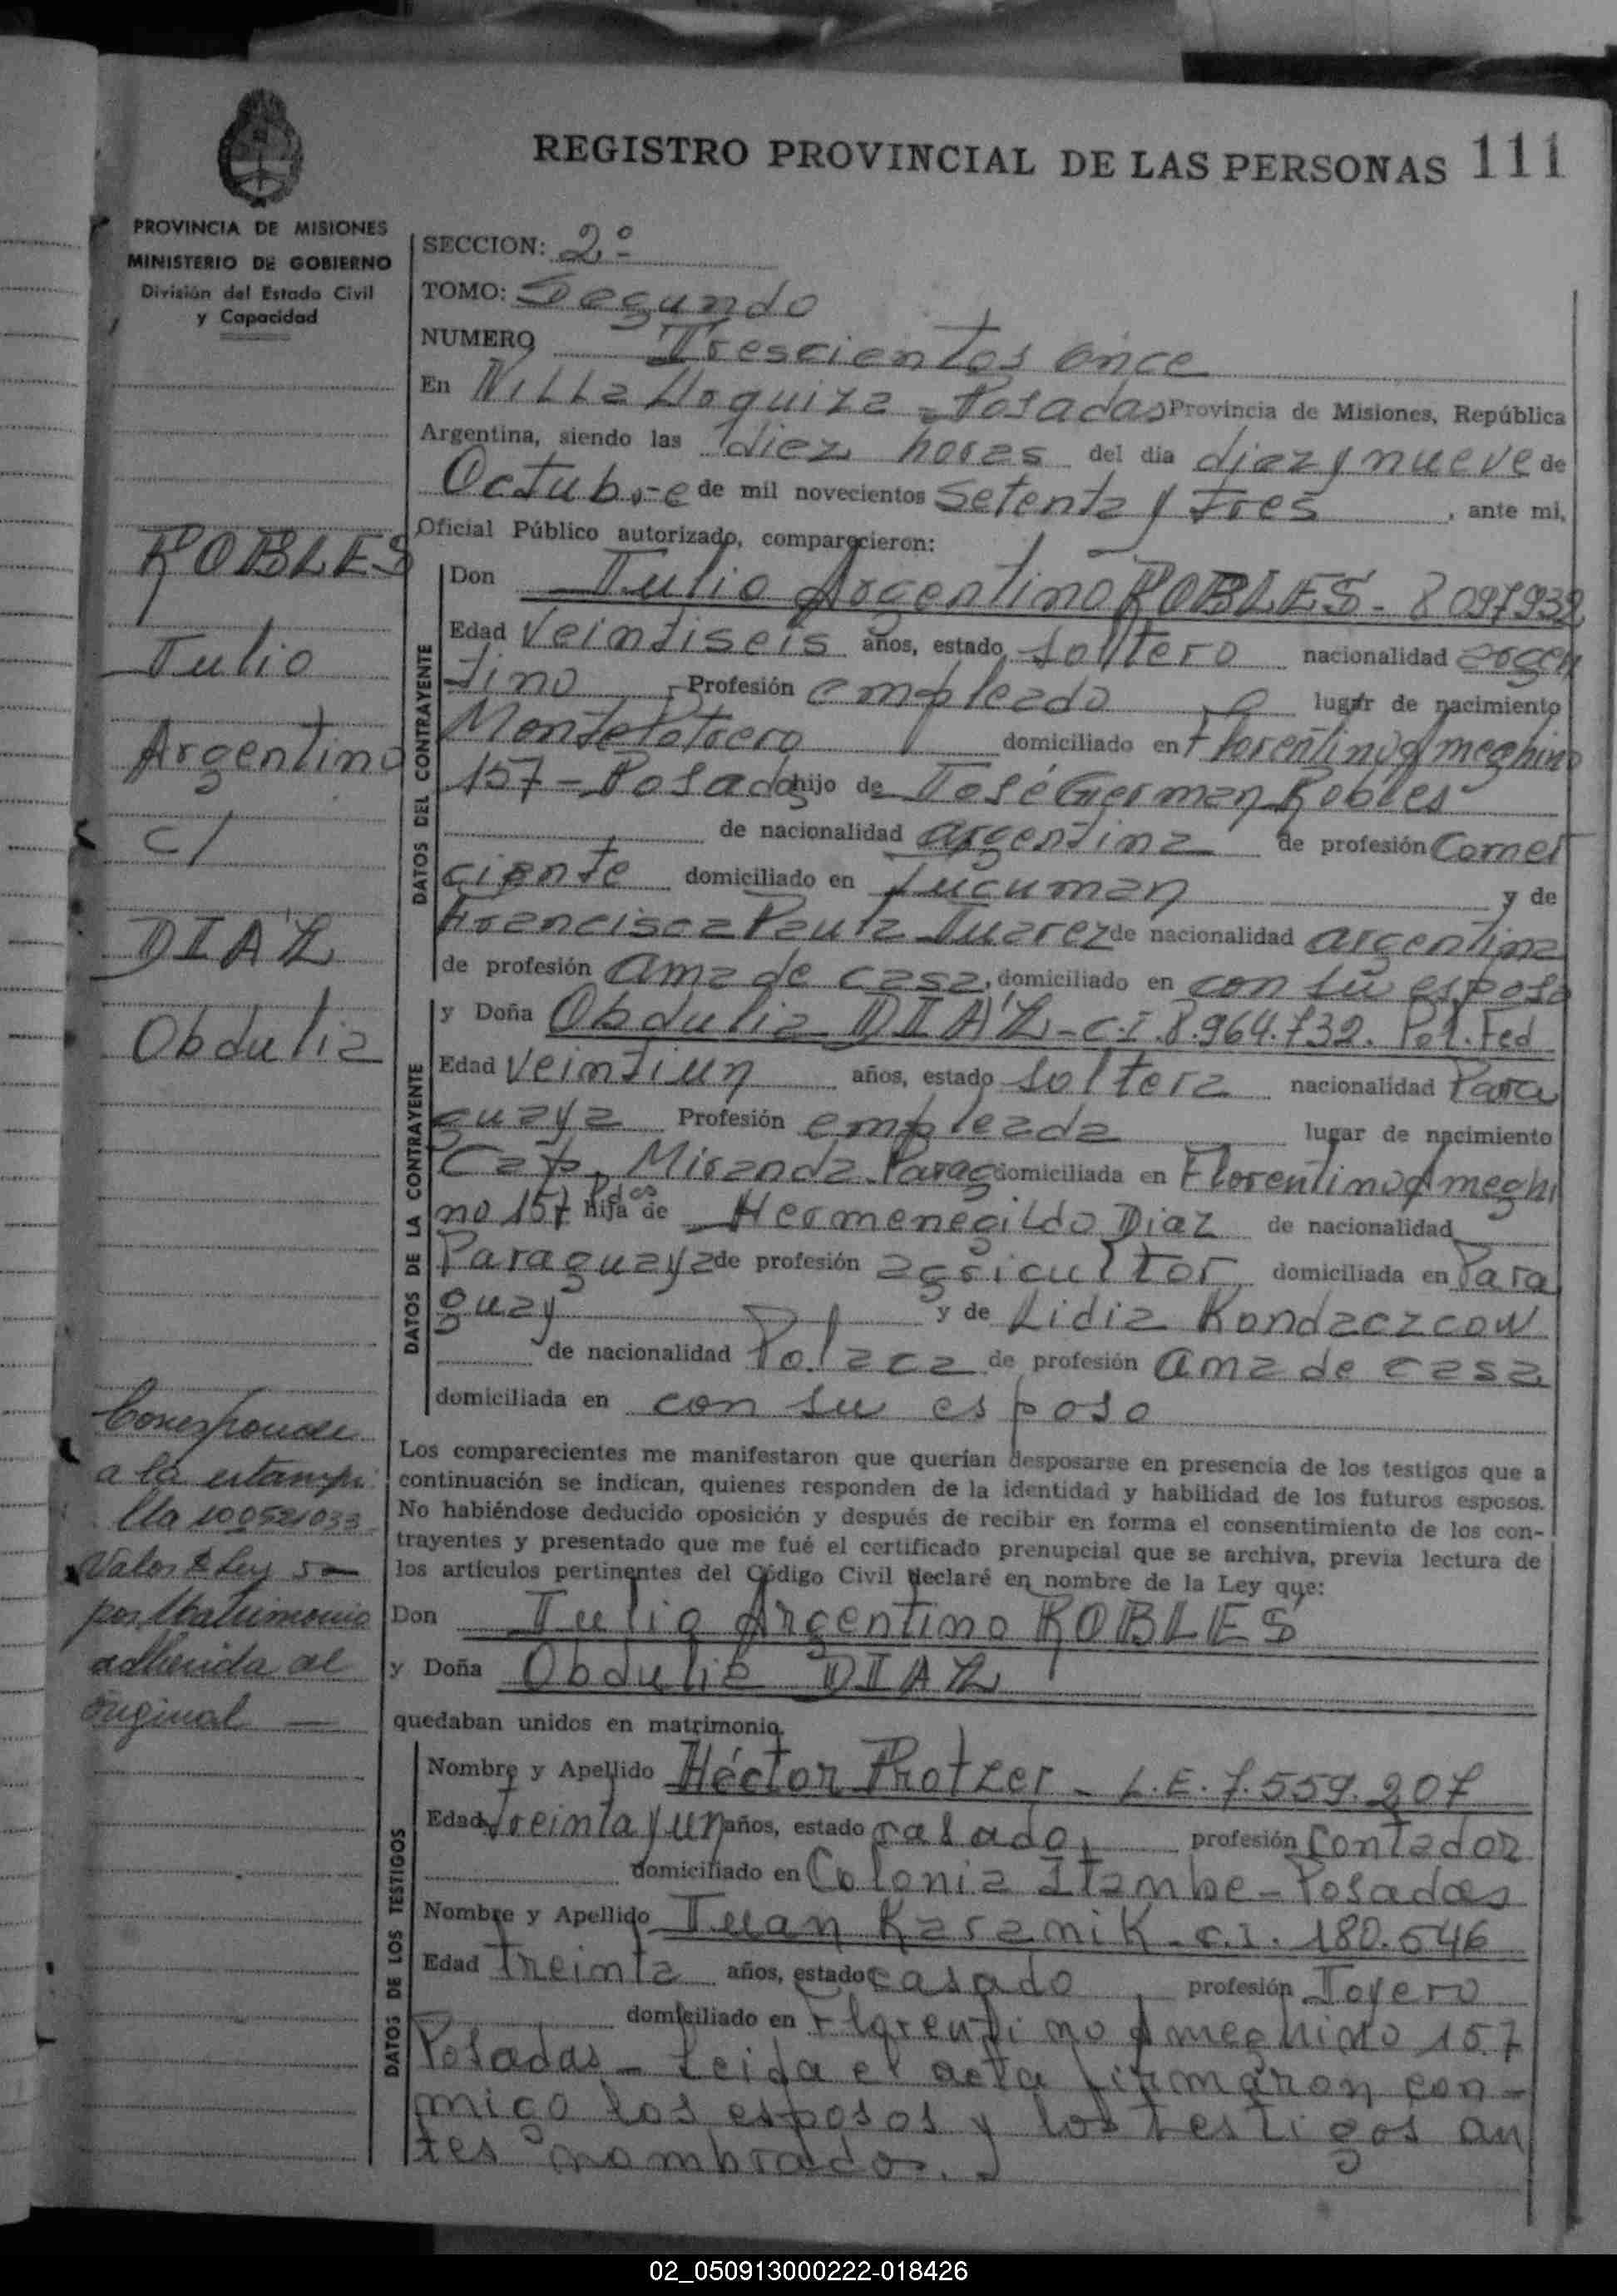 REGISTRO PROVINCIAL DE LAS PERSONAS 111
PROVINCIA DE MISIONES
MINISTERIO DE GOBIERNO
División del Estado Civil
y Capacidad
ROBLES
Julio
Argentino
c/
DIAZ
Obdulia
Corresponde
a la estampi
lla 100521033
Valor Ley 5
por Matrimonio
adherida al
original
SECCION: 2º
TOMO: Segundo
NUMERO Trescientos once
En Villa Urquiza - Posadas Provincia de Misiones, República
Argentina, siendo las diez horas del dia diez y nueve de
Octubre de mil novecientos Setenta y tres, ante mi,
Oficial Público autorizado, comparecieron:
DATOS DEL CONTRAYENTE
Don Julio Argentino ROBLES - 8097932
Edad Veintiseis años, estado soltero nacionalidad argen
tino Profesión empleado lugar de nacimiento
Monte Potrero domiciliado en Florentino Ameghino
157 - Posadas hijo de José German Robles
de nacionalidad argentina de profesión Comer
ciante domiciliado en Tucuman y de
Francisca Paula Juarez de nacionalidad argentina
de profesión ama de casa, domiciliado en con su esposo
DATOS DE LA CONTRAYENTE
y Doña Obdulia DIAZ - C.I. 8.964.732. Pol. Fed
Edad Veintiun años, estado soltera nacionalidad Para
guaya Profesión empleada lugar de nacimiento
Cap. Miranda Parag domiciliada en Florentino Ameghi
no 157 Pdas hija de Hermenegildo Diaz de nacionalidad
Paraguaya de profesión agricultor domiciliada en Para
guay y de Lidia Kondaczcow
de nacionalidad Polaca de profesión ama de casa
domiciliada en con su esposo
Los comparecientes me manifestaron que querían desposarse en presencia de los testigos que a
continuación se indican, quienes responden de la identidad y habilidad de los futuros esposos.
No habiéndose deducido oposición y después de recibir en forma el consentimiento de los con-
trayentes y presentado que me fué el certificado prenupcial que se archiva, previa lectura de
los artículos pertinentes del Código Civil declaré en nombre de la Ley que:
Don Julio Argentino ROBLES
y Doña Obdulia DIAZ
quedaban unidos en matrimonio.
DATOS DE LOS TESTIGOS
Nombre y Apellido Héctor Protzer - L.E. 7.559.207
Edad treinta y un años, estado casado, profesión Contador
domiciliado en Colonia Itambe - Posadas
Nombre y Apellido Juan Karamnik - c.I. 180.546
Edad treinta años, estado casado profesión Joyero
domiciliado en Florentino Ameghino 157
Posadas - Leida el acta firmaron con-
migo los esposos y los testigos an
tes nombrados.
02_050913000222-018426